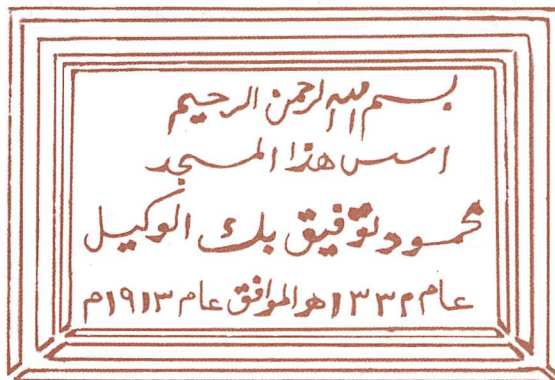 بسم الله الرحمن الرحيم
اسس هذا المسجد
محمود توفيق بك الوكيل
عام ١٣٣٢ هـ الموافق عام ١٩١٣ م